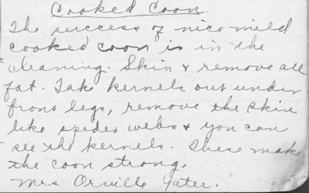 Cooked Coon
The success of nice mild
cooked coon is in the
cleaning. Skin & remove all
fat. Take kernels out under
front legs, remove the skin
like spider webs & you can
see the kernels. These make
the coon strong.
Mrs Orville Yater.